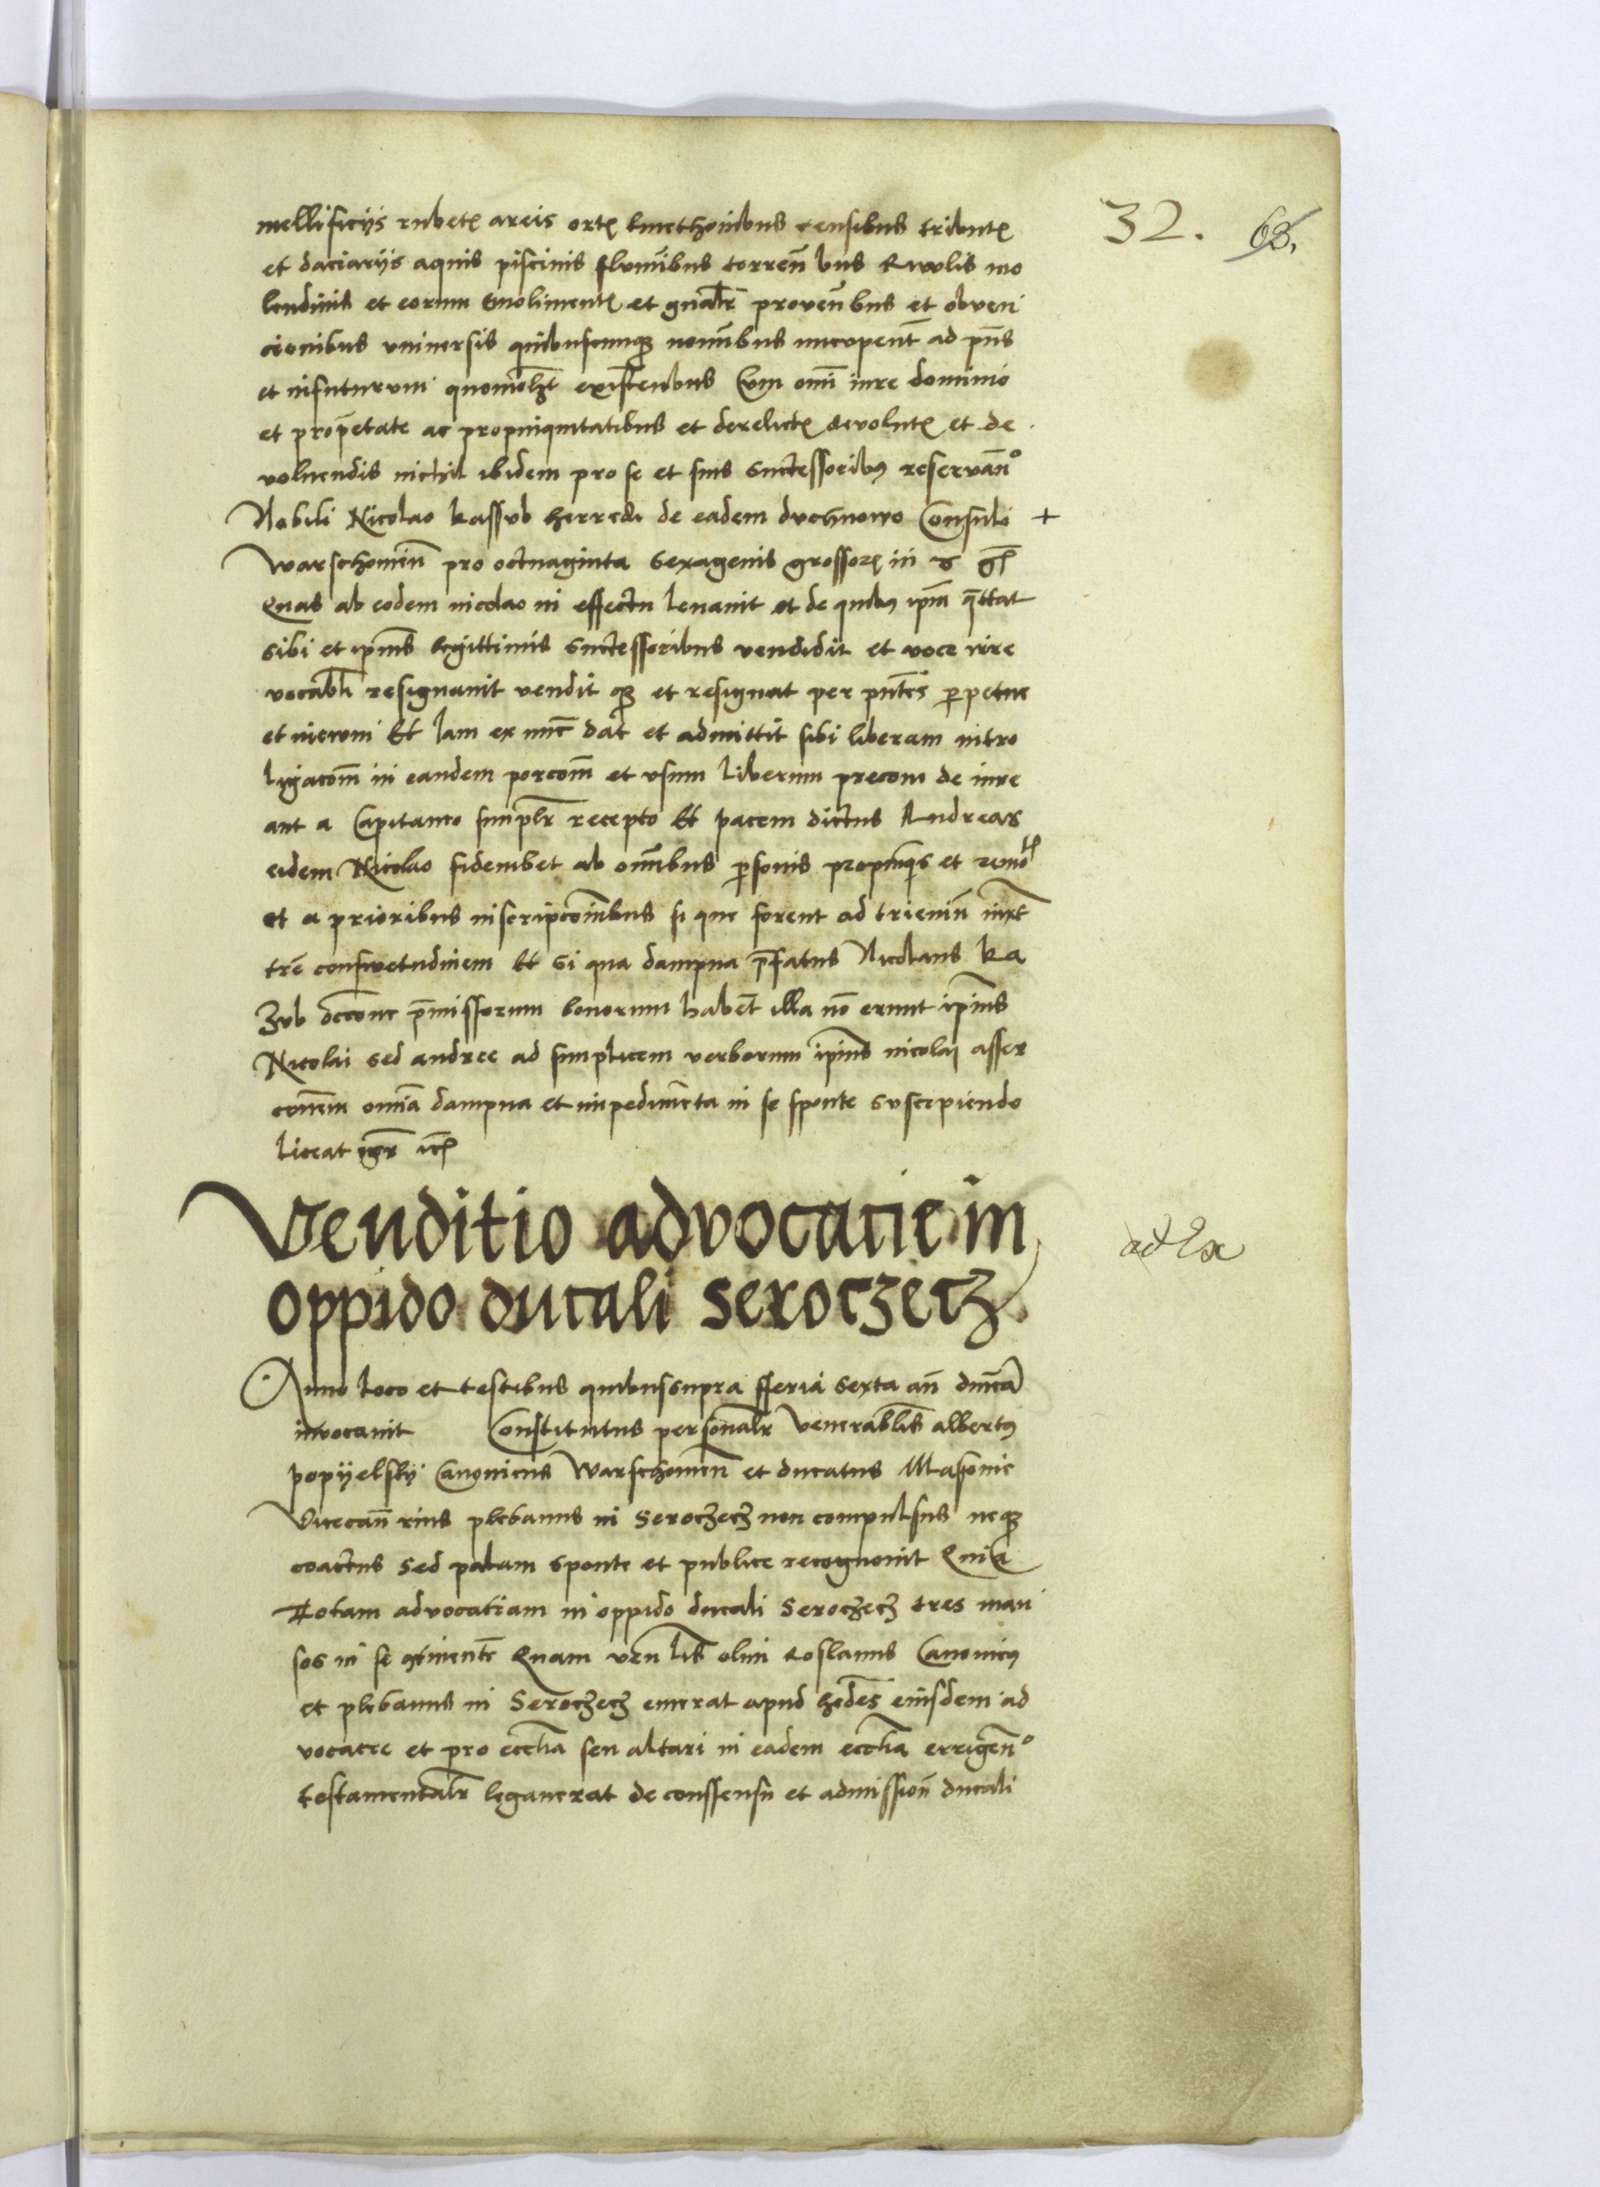 32. 63.
mellificijs rubet areis ort kmethonibus censibus tribut
et daciarijs aquis piscinis flumibus torren bus Rivolis mo
lendinis et eorum Emoliment et gnalr proven bus et obven
cionibus universis quibuscumq nomibus nucupent ad pns
et infuturum quomolt existenbus Cum omi iure dominio
et propetate ac propinquitatibus et derelict devolut et de
volvendis nichil ibidem pro se et suis Successoribus reservan
Nobili Nicolao kassub herredi de eadem duchnowo Consuli +
Warschowien pro octuaginta Sexagenis grossor in
Quas ab eodem nicolao in effectu levavit et de quibus ipm qttat
Sibi et ipius legittimis Successoribus vendidit et voce irre
vocabli resignavit vendit q et resignat per pntes perpetue
et in evum Et Jam ex nunc dat et admittit sibi liberam intro
ligacom in eandem porcom et usum liberum precom de iure
aut a Capitaneo simplr recepto Et pacem dictus Andreas
eidem Nicolao fideiubet ab omibus personis propinqis et remo
et a prioribus inscripcombus si que forent ad trienin iuxt
tre conswetudinem Et Si qua dampna pfatus Nicolaus ka
Zub occone pmissorum bonorum habet illa no erunt ipius
Nicolai Sed andree ad simplicem verborum ipius nicolai asser
conem omia dampna et impedimeta in se sponte Suscipiendo
liceat
Venditio advocacie in
oppido ducali Seroczecz
ad
Anno loco et testibus quibus supra fferia Sexta an dmca
invocavit Constitutus personalr Venerablis albertus
popyelsky Canonicus Warschowien et ducatus Masovie
Vicecan rius plebanus in Seroczecz non compulsus neq
coactus Sed palam Sponte et publice recognovit Quia
Totam advocatiam in oppido ducali Seroczecz tres man
sos in se otinente Quam ven lis olim Roslaus Canonicus
et plebanus in Seroczecz emerat apud hedes eiusdem ad
vocacie et pro ecclia seu altari in eadem ecclia errigen
testamentalr legaverat de conssensu et admission ducali